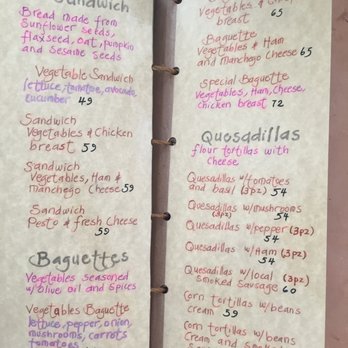 Sandwich
Bread made from
Sunflower seeds,
flaxseed, oat, pumpkin
and Sesame seeds
Vegetable Sandwich
lettuce, tomatoe, avocado,
cucumber 49
Sandwich
Vegetables & Chicken
breast 59
Sandwich
Vegetables, Ham &
manchego Cheese 59
Sandwich
Pesto & fresh Cheese
59
Baguettes
Vegetables seasoned
w/olive oil and Spices
Vegetables Baguette
lettuce, pepper, onion,
mushrooms, carrots
Vegetables &
breast 65
Baguette
Vegetables & Ham
and manchego Cheese 65
Special Baguette
Vegetables, Ham, Cheese,
chicken breast 72
Quosadillas
flour tortillas with
Cheese
Quesadillas w/tomatoes
and basil (3pz) 54
Quesadillas w/mushrooms
(3pz) 54
Quesadillas w/pepper (3pz)
54
Quesadillas w/Ham (3pz)
54
Quesadillas w/local (3pz)
Smoked Sausage 60
Corn tortillas w/beans
cream 59
Corn tortillas w/beans